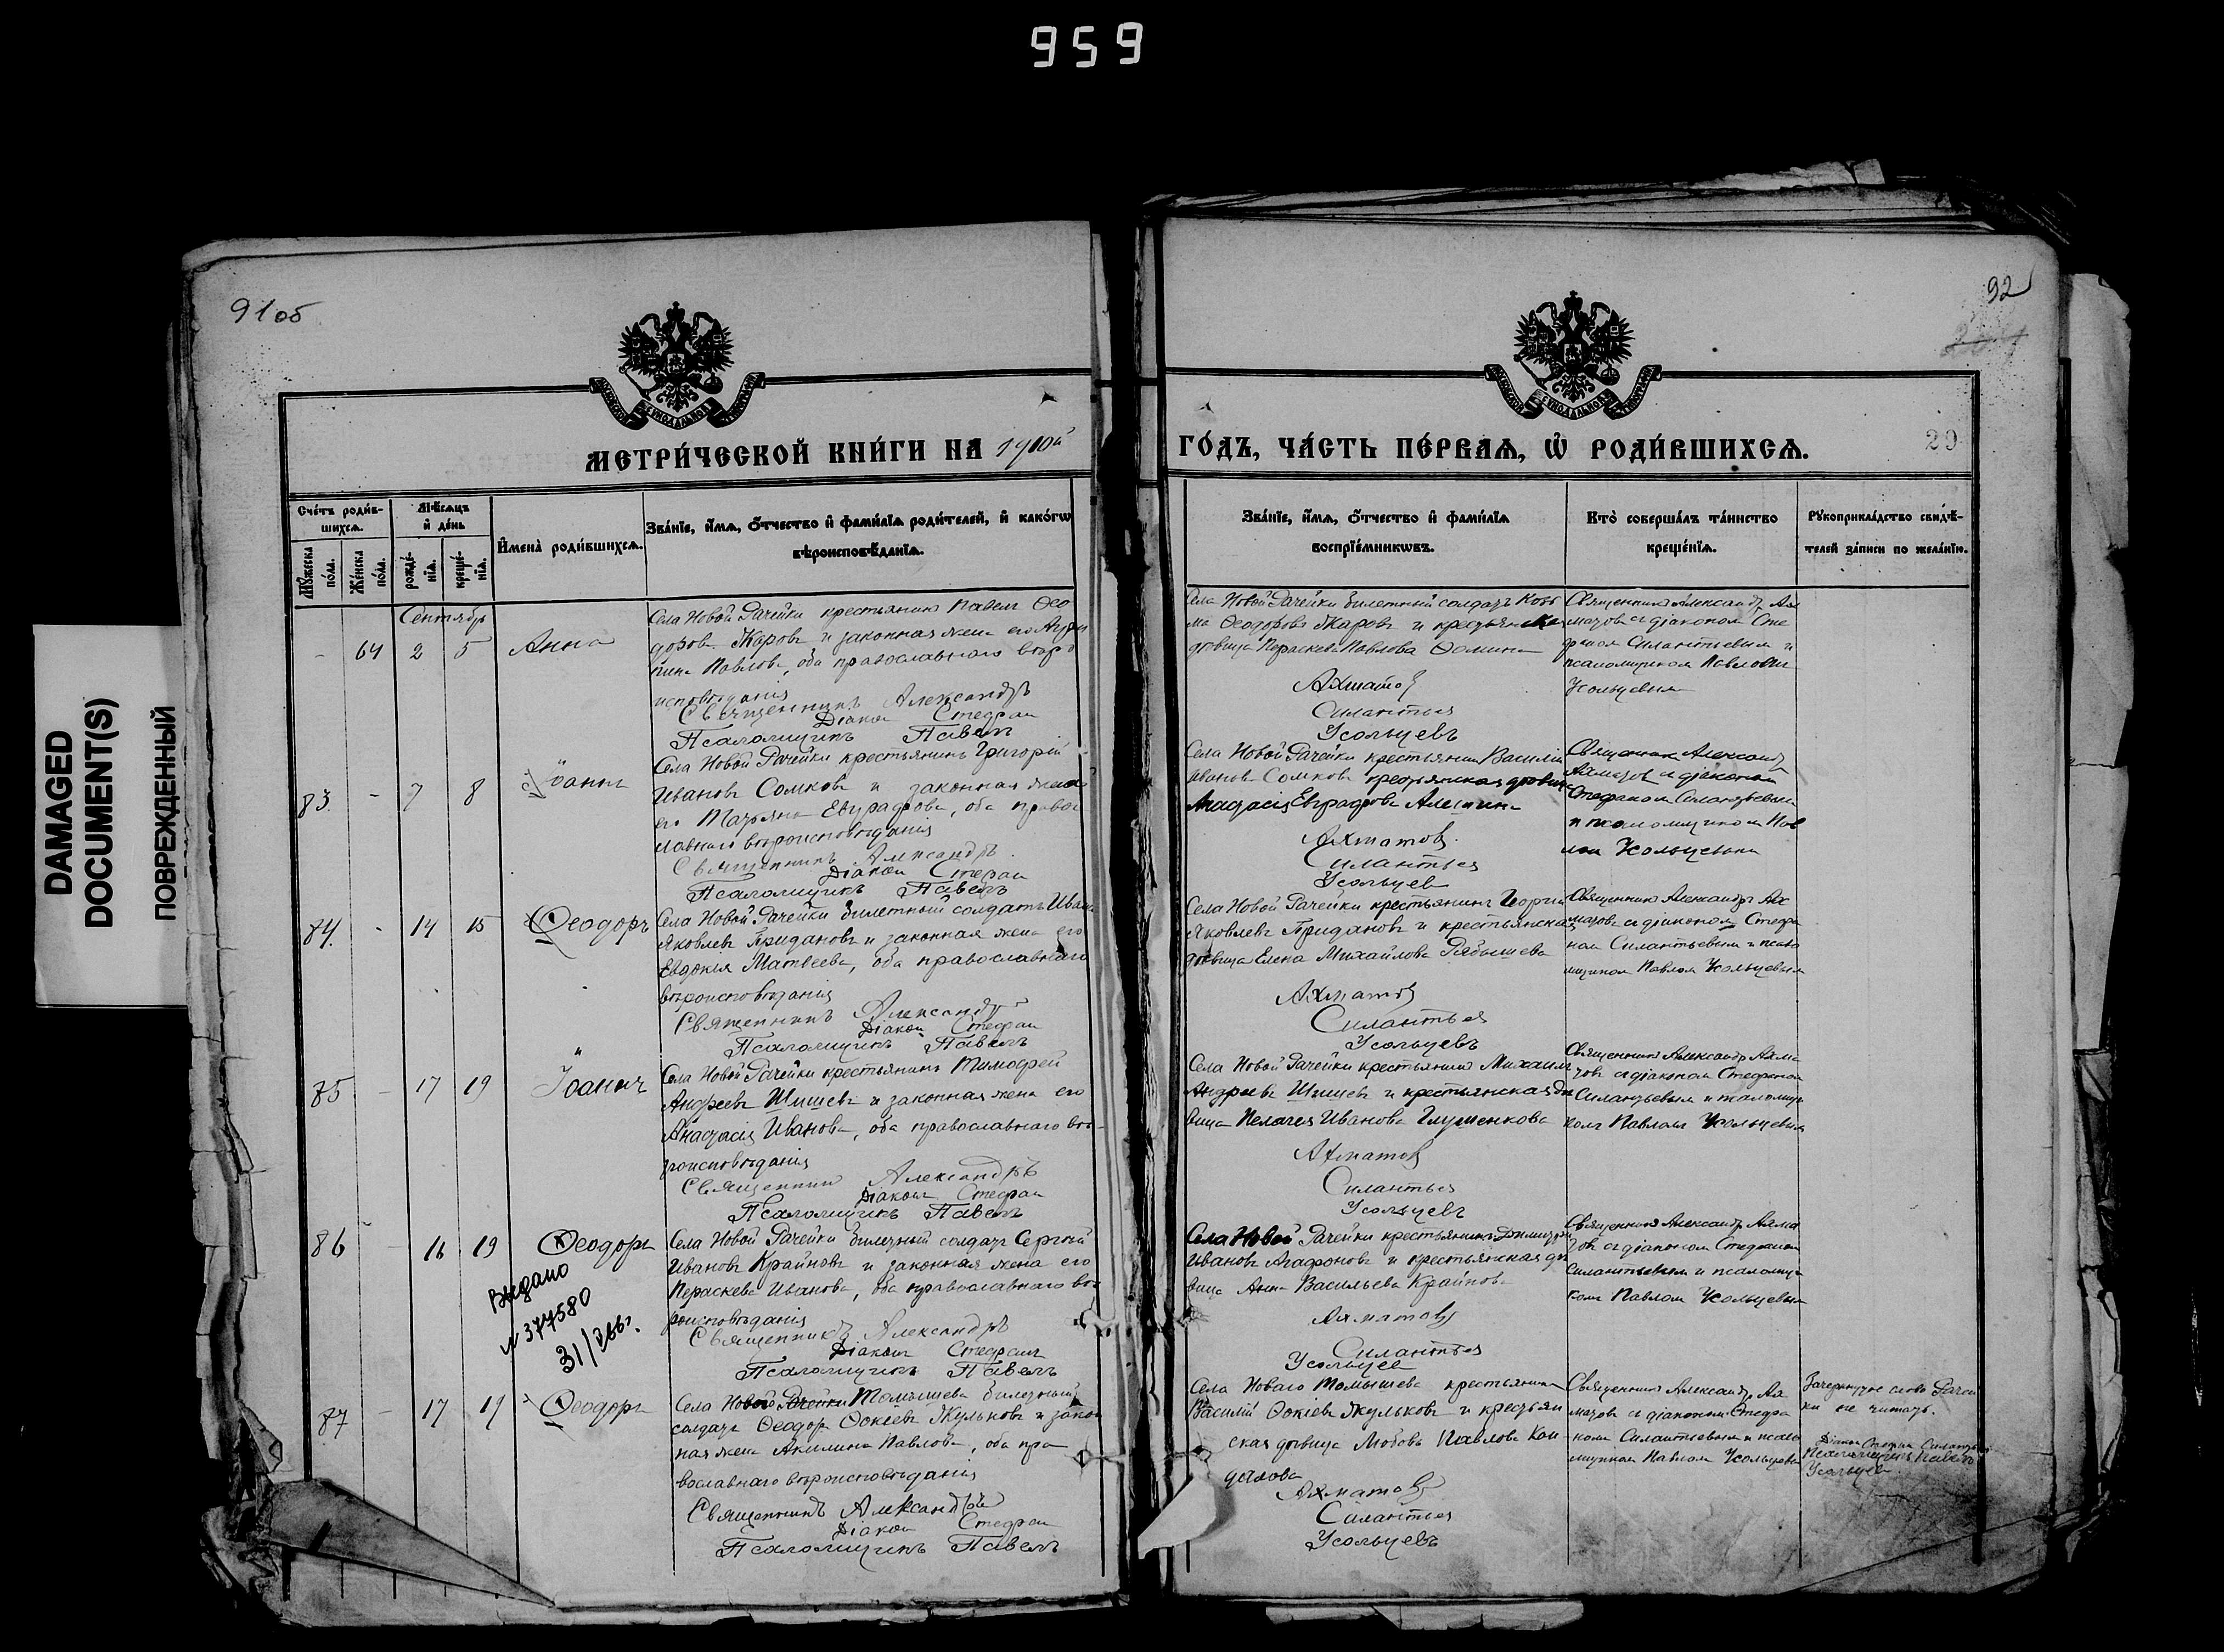 959
DAMAGED
DOCUMENT(S)
ПОВРЕЖДЕННЫЙ
91об
92
29
МЕТРИ́ЧЕСКОЙ КНИ́ГИ НА 1910й ГО́ДЪ, ЧА́СТЬ ПЕ́РВАѦ, Ѡ҆ РОДИ́ВШИХСѦ.
Сче́тъ роди́в-
шихсѧ.
Мѣ́сѧцъ
и҆ де́нь
Мꙋ́жеска
по́ла.
Же́нска
по́ла.
рожде́-
нїѧ.
креще́-
нїѧ.
И҆мена̀ роди́вшихсѧ.
Зва́нїе, и҆́мѧ, ѻ҆́тчество и҆ фами́лїѧ роди́телей, и҆ како́гѡ
вѣроисповѣ́данїѧ.
Зва́нїе, и҆́мѧ, ѻ҆́тчество и҆ фами́лїѧ
воспрїе́мникѡвъ.
Кто̀ соверша́лъ та́инство
креще́нїѧ.
Рꙋкоприкла́дство свидѣ́-
телей за́писи по жела́нїю.
Сентябрь
- 64 2 5 Анна
Села Новой Рачейки крестьянинъ Павелъ Ѳео
доровъ Жаровъ и законная жена его Агрип
пина Павлова, оба православнаго вѣро
исповѣданія
Священникъ Александръ
Діаконъ Стефан
Псаломщикъ Павелъ
Села Новой Рачейки билетный солдатъ Козь
ма Ѳеодоровъ Жаровъ и крестьянская
дѣвица Пераскева Павлова Ѳомина
Ахматов
Силантьев
Усольцевъ
Священникъ Александръ Ах
матовъ съ діакономъ Сте
фаномъ Силантьевым и
псаломщикомъ Павломъ
Усольцевымъ
83. - 7 8 Іоаннъ
Села Новой Рачейки крестьянинъ Григорій
Ивановъ Сомковъ и законная жена
его Татьяна Евграфова, оба правос
лавнаго вѣроисповѣданія
Священникъ Александръ
Діакон Стефан
Псаломщикъ Павелъ
Села Новой Рачейки крестьянин Василій
Ивановъ Сомковъ крестьянская дѣвица
Анастасія Евграфова Алешина
Ахматов.
Силантьев
Усольцев
Священникъ Александръ
Ахматовъ съ діакономъ
Стефаномъ Силантьевымъ
и псаломщикомъ Пав
ломъ Усольцевымъ
84. - 14 15 Ѳеодоръ
Села Новой Рачейки билетный солдатъ Иванъ
Яковлевъ Придановъ и законная жена его
Евдокія Матвеева, оба православнаго
вѣроисповѣданія
Священникъ Александръ
Діакон Стефан
Псаломщикъ Павелъ
Села Новой Рачейки крестьянинъ Георгій
Яковлевъ Придановъ и крестьянская
дѣвица Елена Михайлова Рябышева
Ахматов
Силантьев
Усольцевъ
Священникъ Александръ Ах
матовъ съ діакономъ Стефа
номъ Силантьевымъ и псало
мщикомъ Павломъ Усольцевымъ
85 - 17 19 Іоаннъ
Села Новой Рачейки крестьянинъ Тимофей
Андреевъ Шишевъ и законная жена его
Анастасія Иванова, оба православнаго вѣ-
роисповѣданія
Священник Александръ
Діаконъ Стефан
Псаломщикъ Павелъ
Села Новой Рачейки крестьянинъ Михаилъ
Андреевъ Шишевъ и крестьянская дѣ
вица Пелагея Иванова Глушенкова
Ахматов
Силантьев
Усольцевъ
Священникъ Александръ Ахма
товъ съ діакономъ Стефаномъ
Силантьевымъ и псаломщи
комъ Павломъ Усольцевымъ
86 - 16 19 Ѳеодоръ
Выдано
№ 377580
Села Новой Рачейки билетный солдатъ Сергей
Ивановъ Крайновъ и законная жена его
Пераскева Иванова, оба православнаго вѣ
роисповѣданія
Священникъ Александръ
Діаконъ Стефанъ
Псаломщикъ Павелъ
Села Новой Рачейки крестьянинъ Димитрій
Ивановъ Агафоновъ и крестьянская дѣ
вица Анна Васильева Крайнова
Ахматовъ
Силантьев
Усольцев
Священникъ Александръ Ахма
товъ съ діакономъ Стефаномъ
Силантьевымъ и псаломщи
комъ Павломъ Усольцевым
87 - 17 19 Ѳеодоръ
Села Новаго Рачейки Томышева билетный
солдатъ Ѳеодоръ Ѳокіевъ Жульковъ и закон
ная жена Акилина Павлова, оба пра
вославнаго вѣроисповѣданія
Священникъ Александръ
Діакон Стефан
Псаломщикъ Павелъ
Села Новаго Томышева крестьянинъ
Василій Ѳокіевъ Жульковъ и крестьян
ская дѣвица Любовь Павлова Кон
Ахматовъ
Силантьев
Усольцевъ
Священникъ Александръ Ах
матовъ съ діакономъ Стефа
номъ Силантьевымъ и псало
мщикомъ Павломъ Усольцевым
Зачеркнутое слово Рачей
ки не читать.
Діаконъ Стефан Силантьев
Псаломщикъ Павелъ
Усольцев